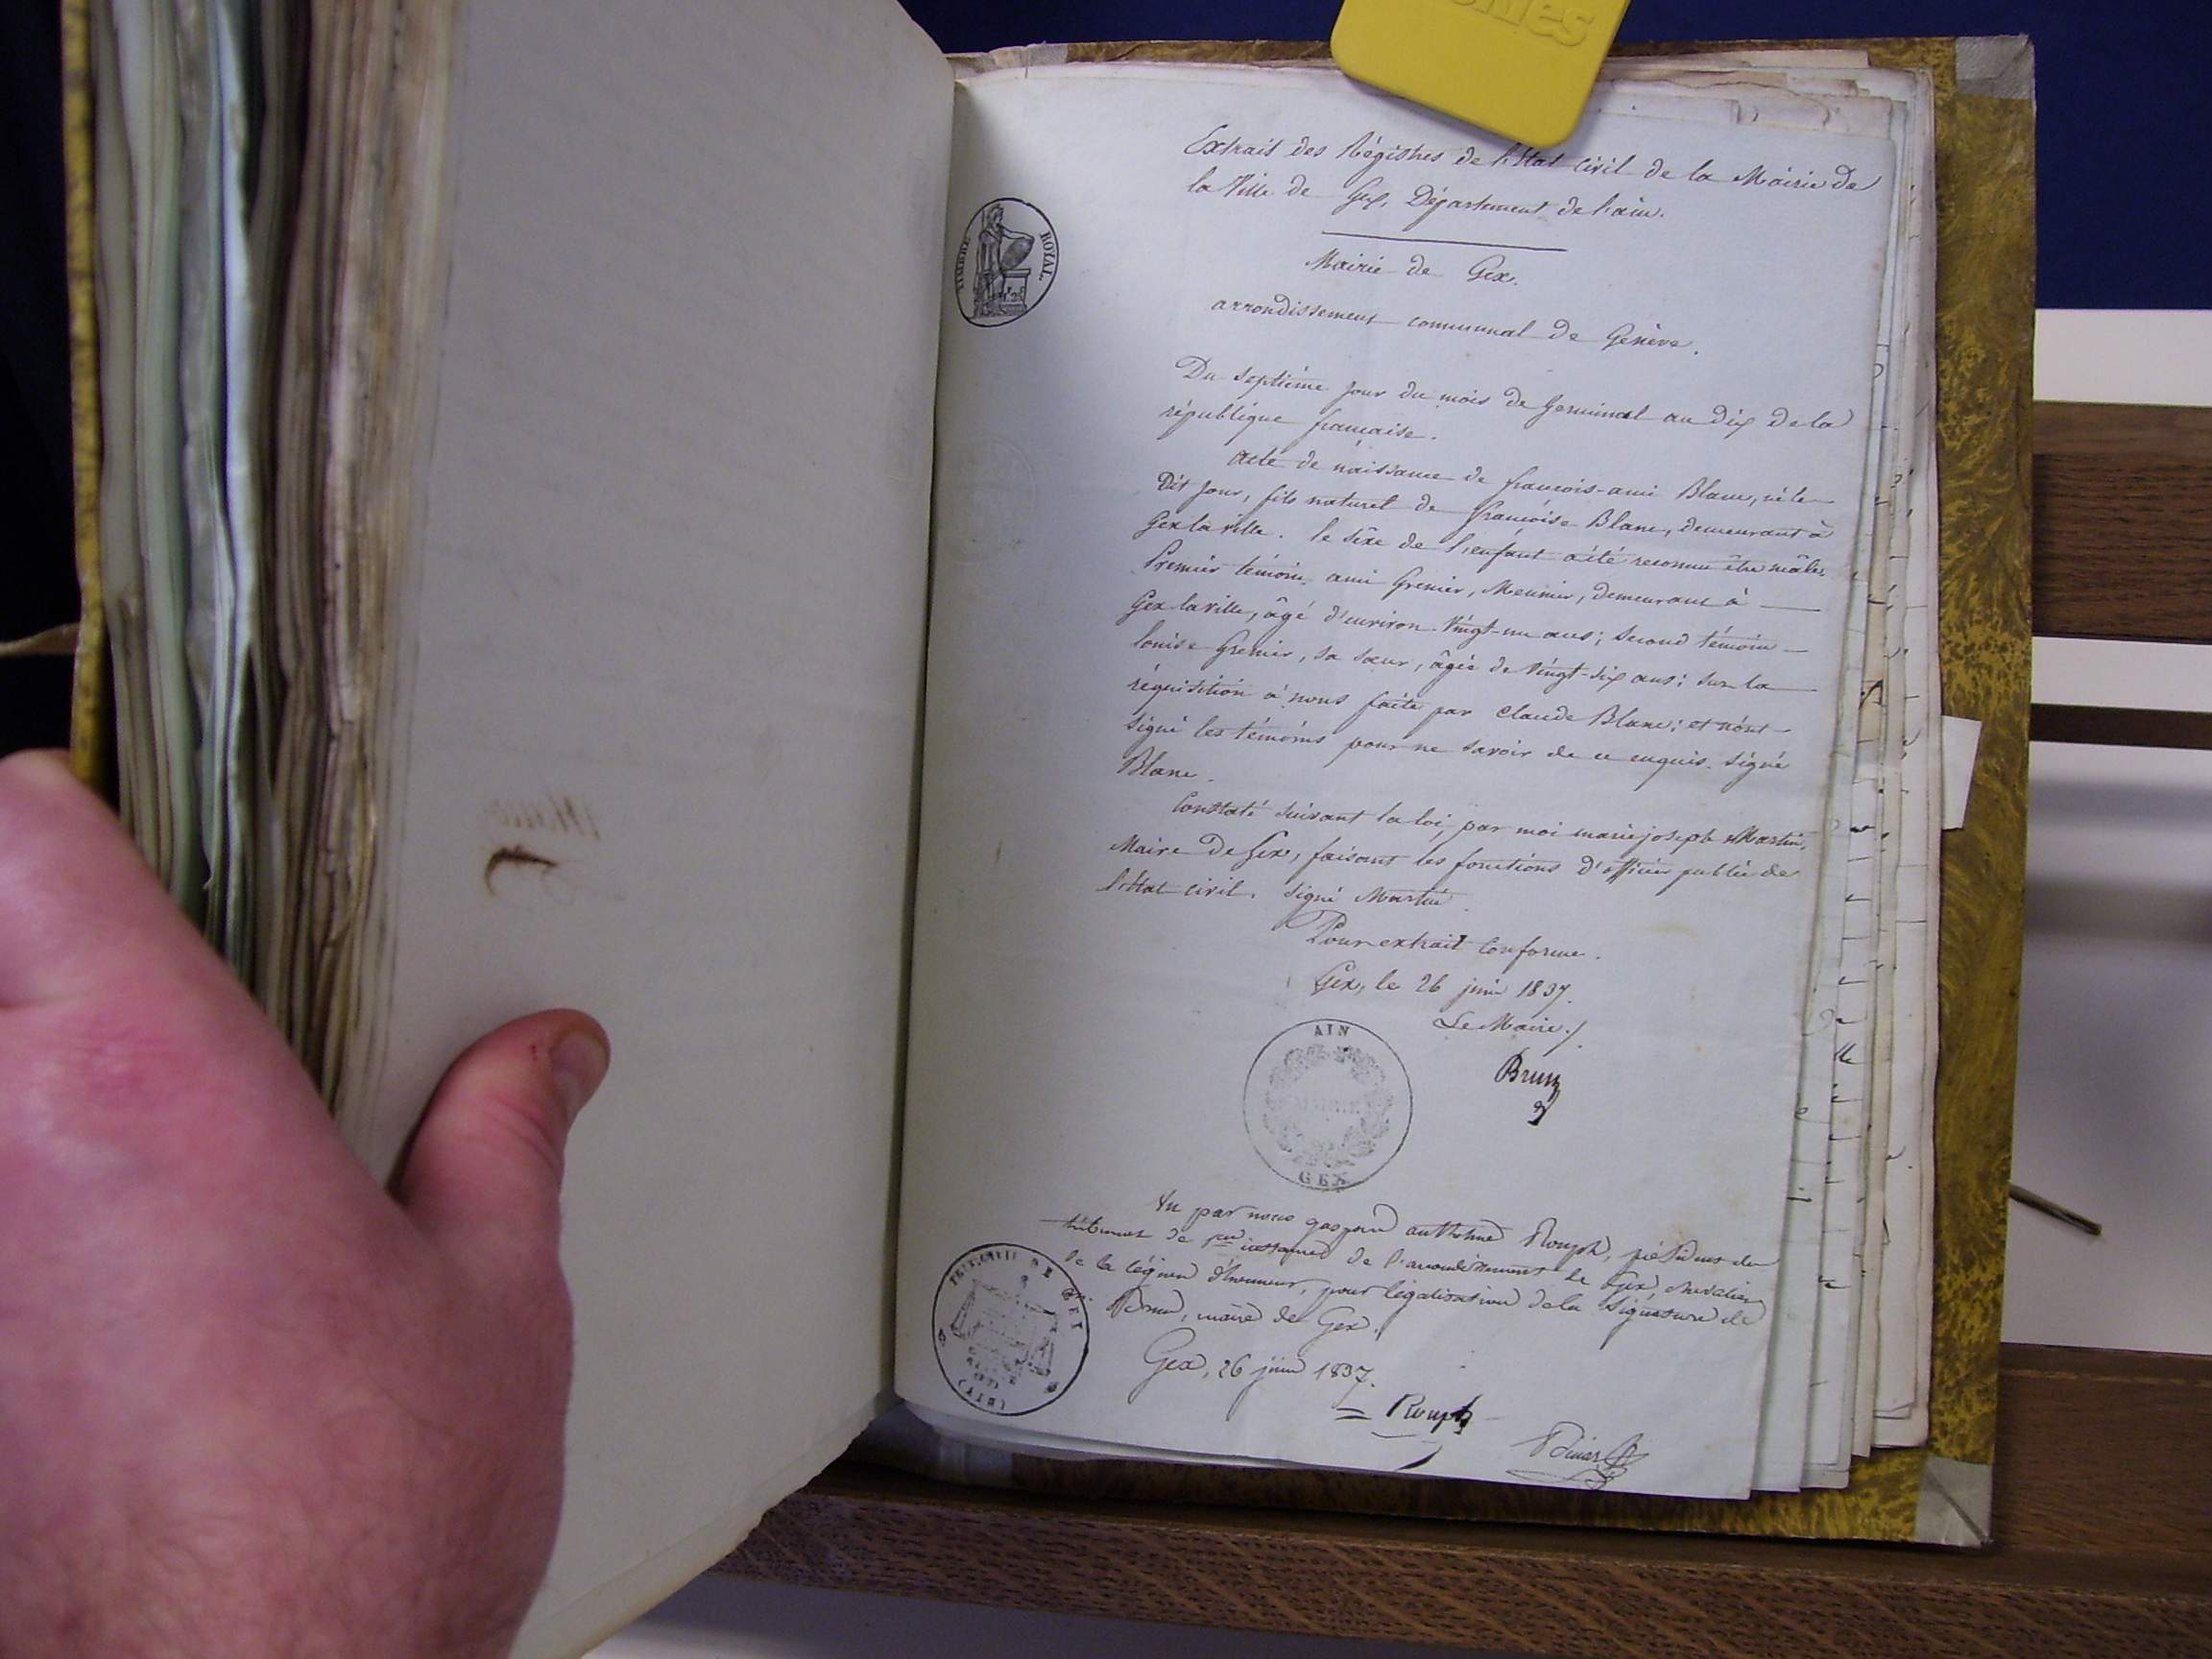 Extrait des Régistres de l'état civil de la Mairie de
la Ville de Gex, Département de l'ain.
TIMBRE ROYAL
Mairie de Gex.
arrondissement communal de Genève.
Du septième jour du mois de Germinal an dix de la
république francaise.
Acte de naissance de francois-ami Blanc, né le
Dit jour, fils naturel de françoise Blanc, demeurant à
Gex la ville. le sexe de l'enfant a été reconnu être mâle.
Premier témoin, ami Grenier, Meunier, demeurant à
Gex la ville, âgé d'environ Vingt-un ans; second témoin
louise Grenier, sa sœur, âgée de Vingt-six ans; sur la
réquisition à nous faite par Claude Blanc; et n'ont
signé les témoins pour ne savoir de ce enquis. signé
Blanc.
Constaté suivant la loi, par moi marie joseph Martin,
Maire De Gex, faisant les fonctions d'officier public de
l'état civil. signé Martin.
Pour extrait conforme.
Gex, le 26 juin 1837.
Le Maire
AIN
GEX
Brun
Vu par nous gaspard anthelme Rouph, président du
tribunal de pre instance de l'arrondissement de Gex, chevalier
de la légion d'honneur, pour légalisation de la signature de
m. Brun, maire de Gex.
Gex, 26 juin 1837.
TRIBUNAL DE GEX
(AIN)
Rouph